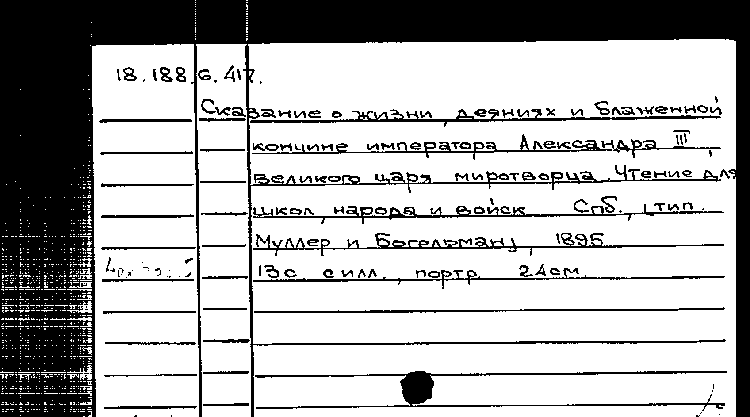 18.188.6.417.
Сказание о жизни, деяниях и блаженной
кончине императора Александра III,
великого царя миротворца. Чтение для
школ, народа и войск Спб., [тип.
Муллер и Богельман], 1895
13с. с илл., портр. 24см.